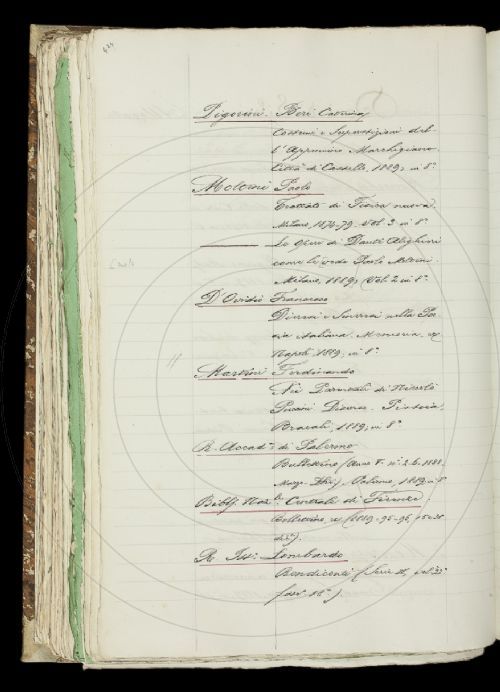 434
Pigorini-Beri Caterina
Costumi e Superstizioni dell-
l'Appennino Marchigiano.
Città di Castello, 1889, in 8°
Molteni Paolo
Trattato di Fisica nuova.
Milano, 1874-79. Vol. 3 in 8°
Le Opere di Dante Alighieri
come le vede Paolo Molteni.
Milano, 1889, Vol. 2 in 8°
D'Ovidio Francesco
Dieresi e Sineresi nella Poe-
sia italiana. Memoria, ec
Napoli, 1889, in 8°
Martini Ferdinando
Nei Parentali di Niccolò
Puccini Discorso. Pistoia,
Bracali, 1889, in 8°
R. Accad.ª di Palermo
Bullettino (Anno V. n.i 2-6. 1888.
Palermo, 1889, in 8°
Bibl. Naz.le Centrale di Firenze.
Bollettino, ec (1889. 95-96,
R. Ist.º Lombardo
Rendiconti (Serie II, vol.